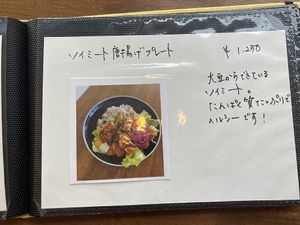 ソイミート唐揚げプレート
¥1,250
大豆からできている
ソイミート。
たんぱく質たっぷりで
ヘルシーです!